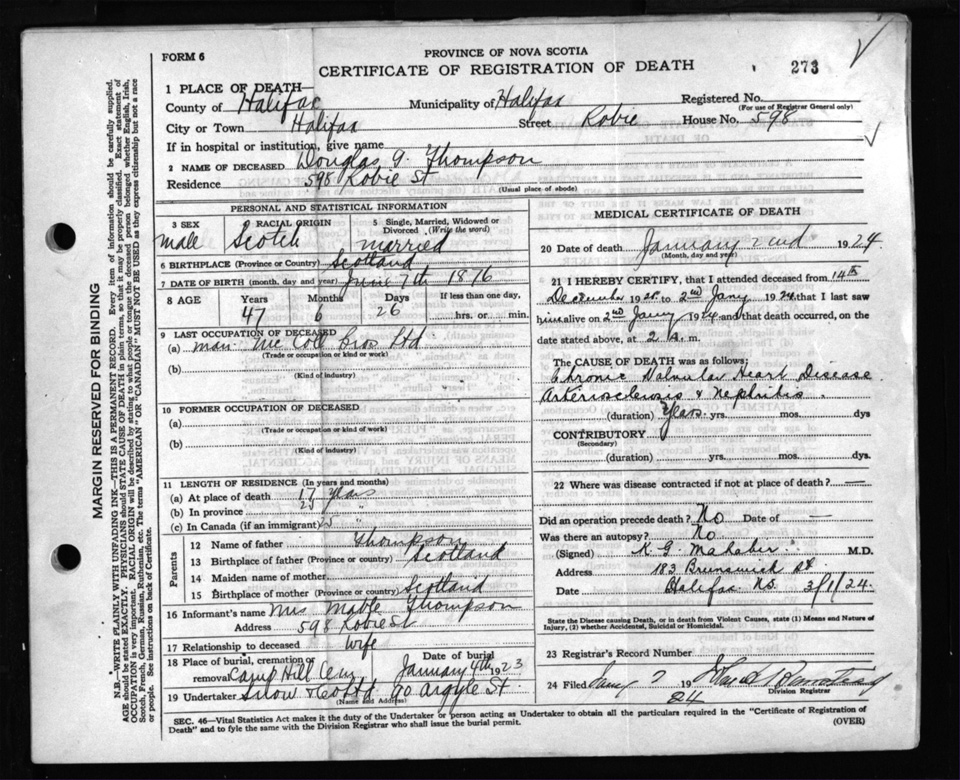 FORM 6
PROVINCE OF NOVA SCOTIA
CERTIFICATE OF REGISTRATION OF DEATH
273
1 PLACE OF DEATH—
County of Halifax Municipality of Halifax Registered No.
(For use of Registrar General only)
City or Town Halifax Street Robie House No. 598
If in hospital or institution, give name
2 NAME OF DECEASED Douglas G. Thompson
Residence 598 Robie St
(Usual place of abode)
PERSONAL AND STATISTICAL INFORMATION
3 SEX 4 RACIAL ORIGIN 5 Single, Married, Widowed or Divorced (Write the word)
Male Scotch married
6 BIRTHPLACE (Province or Country) Scotland
7 DATE OF BIRTH (month, day and year) June 7th 1876
8 AGE Years Months Days If less than one day,
47 6 26 hrs. or min.
9 LAST OCCUPATION OF DECEASED
(a) Man. McColl Bros Ltd
(Trade or occupation or kind or work)
(b)
(Kind of industry)
10 FORMER OCCUPATION OF DECEASED
(a)
(Trade or occupation or kind of work)
(b)
(Kind of Industry)
11 LENGTH OF RESIDENCE (In years and months)
(a) At place of death 17 years
(b) In province 25 "
(c) In Canada (if an immigrant) 25 "
Parents
12 Name of father Thompson
13 Birthplace of father (Province or country) Scotland
14 Maiden name of mother
15 Birthplace of mother (Province or country) Scotland
16 Informant's name Mrs Mable Thompson
Address 598 Robie St
17 Relationship to deceased wife
18 Place of burial, cremation or removal Camp Hill Cem Date of burial January 4th 1923
19 Undertaker Snow & Co Ltd 90 Argyle St.
(Name and Address)
MEDICAL CERTIFICATE OF DEATH
20 Date of death January 2nd 1924
(Month, day and year)
21 I HEREBY CERTIFY, that I attended deceased from 14th
December 19 to 2nd Jany 1924 that I last saw
him alive on 2nd Jany 1924 and that death occurred, on
the date stated above, at 2 A. m.
The CAUSE OF DEATH was as follows:
Chronic Valvular Heart Disease
Arteriosclerosis & Nephritis.
(duration) Years. yrs. mos. dys
CONTRIBUTORY
(Secondary)
(duration) yrs. mos. dys.
22 Where was disease contracted if not at place of death? —
Did an operation precede death? No Date of —
Was there an autopsy? No
(Signed) K. G. Mahabir M.D.
Address 183 Brunswick St
Date Halifax N.S. 3/1/24.
State the Disease causing Death, or in death from Violent Causes, state (1) Means and Nature of Injury, (2) whether Accidental, Suicidal or Homicidal.
23 Registrar's Record Number
24 Filed Jany 7 1924
Division Registrar
SEC. 46—Vital Statistics Act makes it the duty of the Undertaker or person acting as Undertaker to obtain all the particulars required in the "Certificate of Registration of
Death" and to fyle the same with the Division Registrar who shall issue the burial permit.
(OVER)
MARGIN RESERVED FOR BINDING
N.B.—WRITE PLAINLY WITH UNFADING INK—THIS IS A PERMANENT RECORD. Every item of information should be carefully supplied.
AGE should be stated EXACTLY. PHYSICIANS should STATE CAUSE OF DEATH in plain terms, so that it may be properly classified. Exact statement of
OCCUPATION is very important. RACIAL ORIGIN will be described by stating to what people or tongue the deceased person belonged whether English, Irish,
Scotch, French, German, Russian, Ruthenian, etc. The terms "AMERICAN" OR "CANADIAN" MUST NOT BE USED as they express citizenship but not a race
or people. See instructions on back of Certificate.